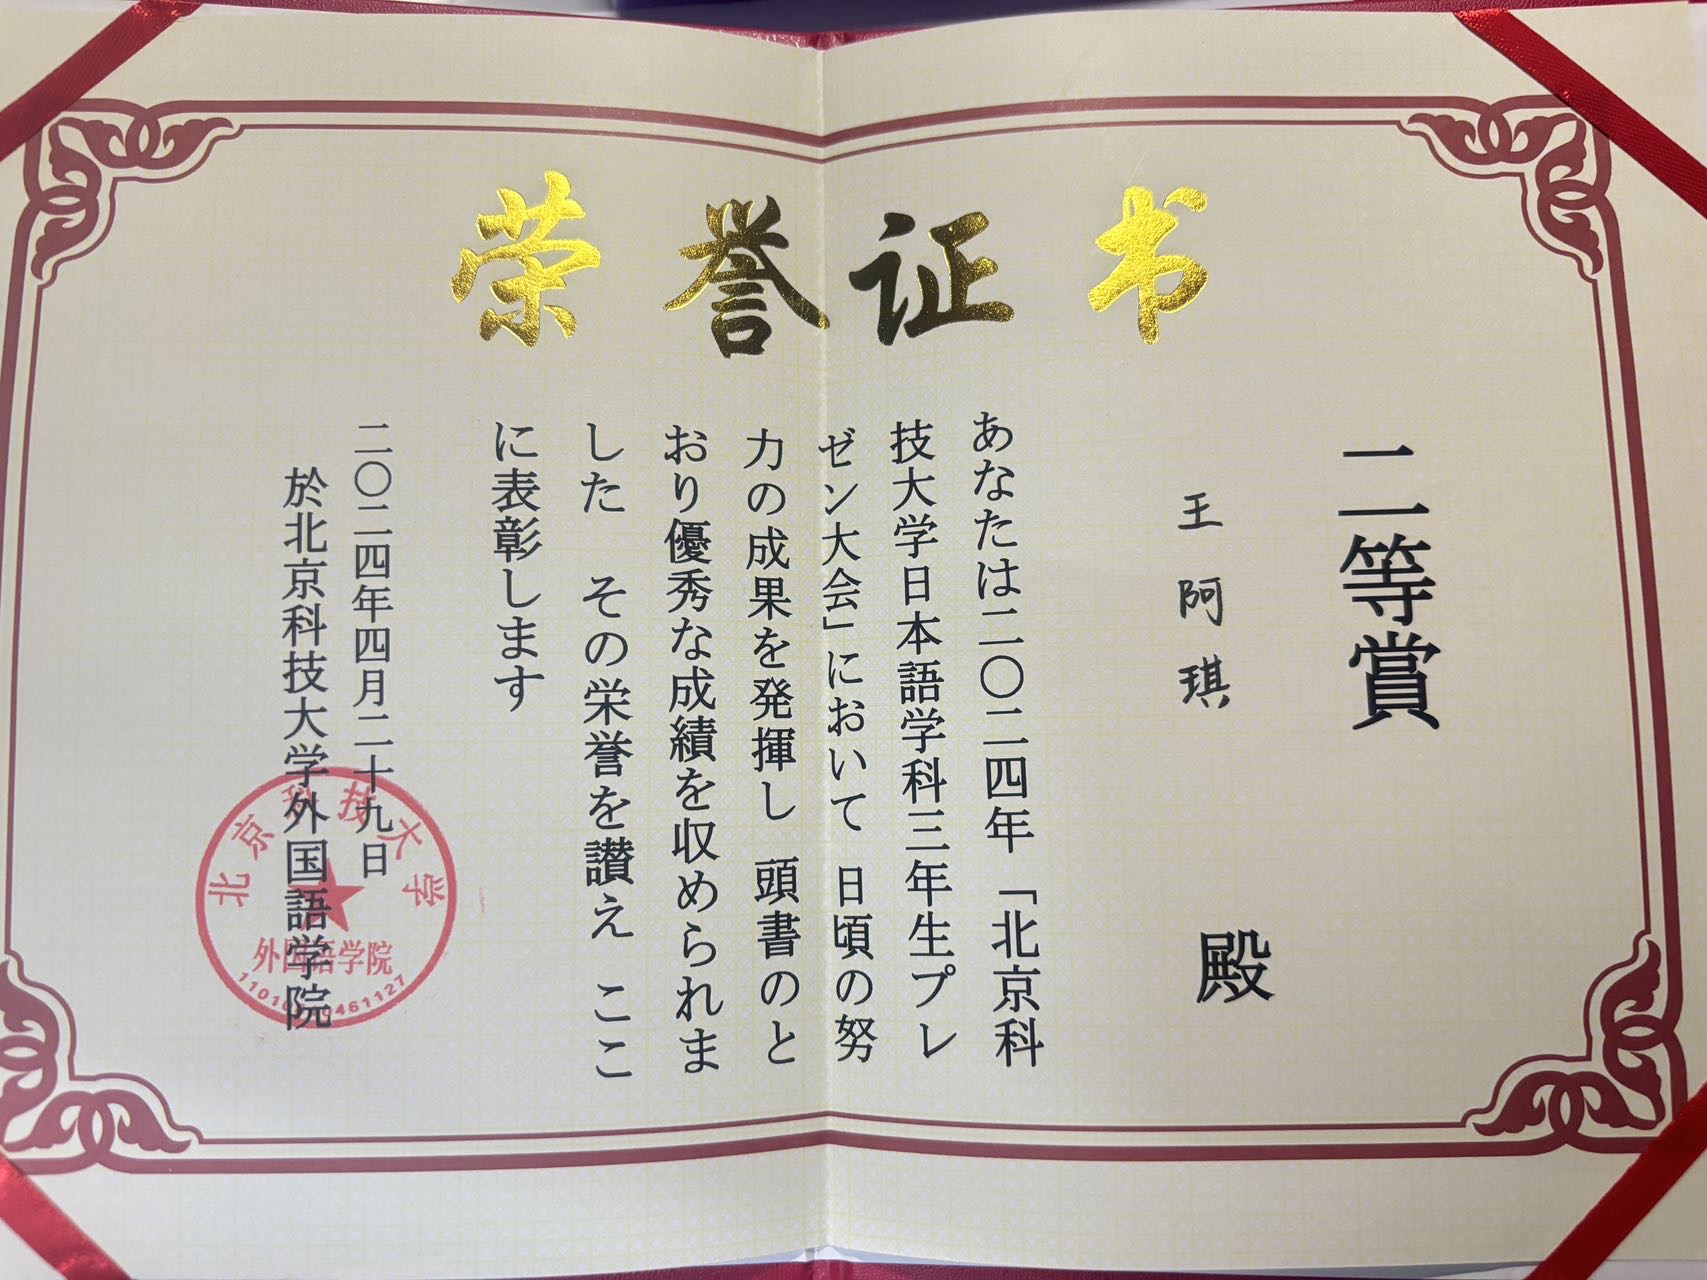 荣誉证书
二等賞
王阿琪 殿
あなたは二〇二四年「北京科
技大学日本語学科三年生プレ
ゼン大会」において 日頃の努
力の成果を発揮し 頭書のと
おり優秀な成績を収められま
した その栄誉を讃え ここ
に表彰します
二〇二四年四月二十九日
於北京科技大学外国語学院
北京科技大学
外国語学院